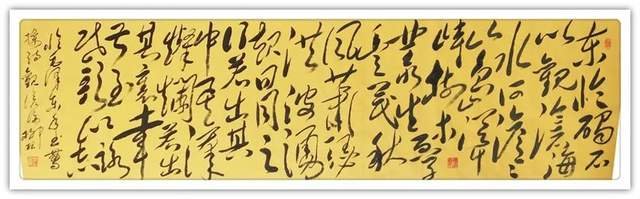 東臨碣石
以觀滄海
水何澹々
山島竦
峙樹木
叢生百草
豐茂秋
風蕭瑟
洪波涌
起日月之
行若出其
中星漢
燦爛若出
其裏幸
甚至
哉歌以詠志
臨毛澤東手書曹
操詩觀滄海